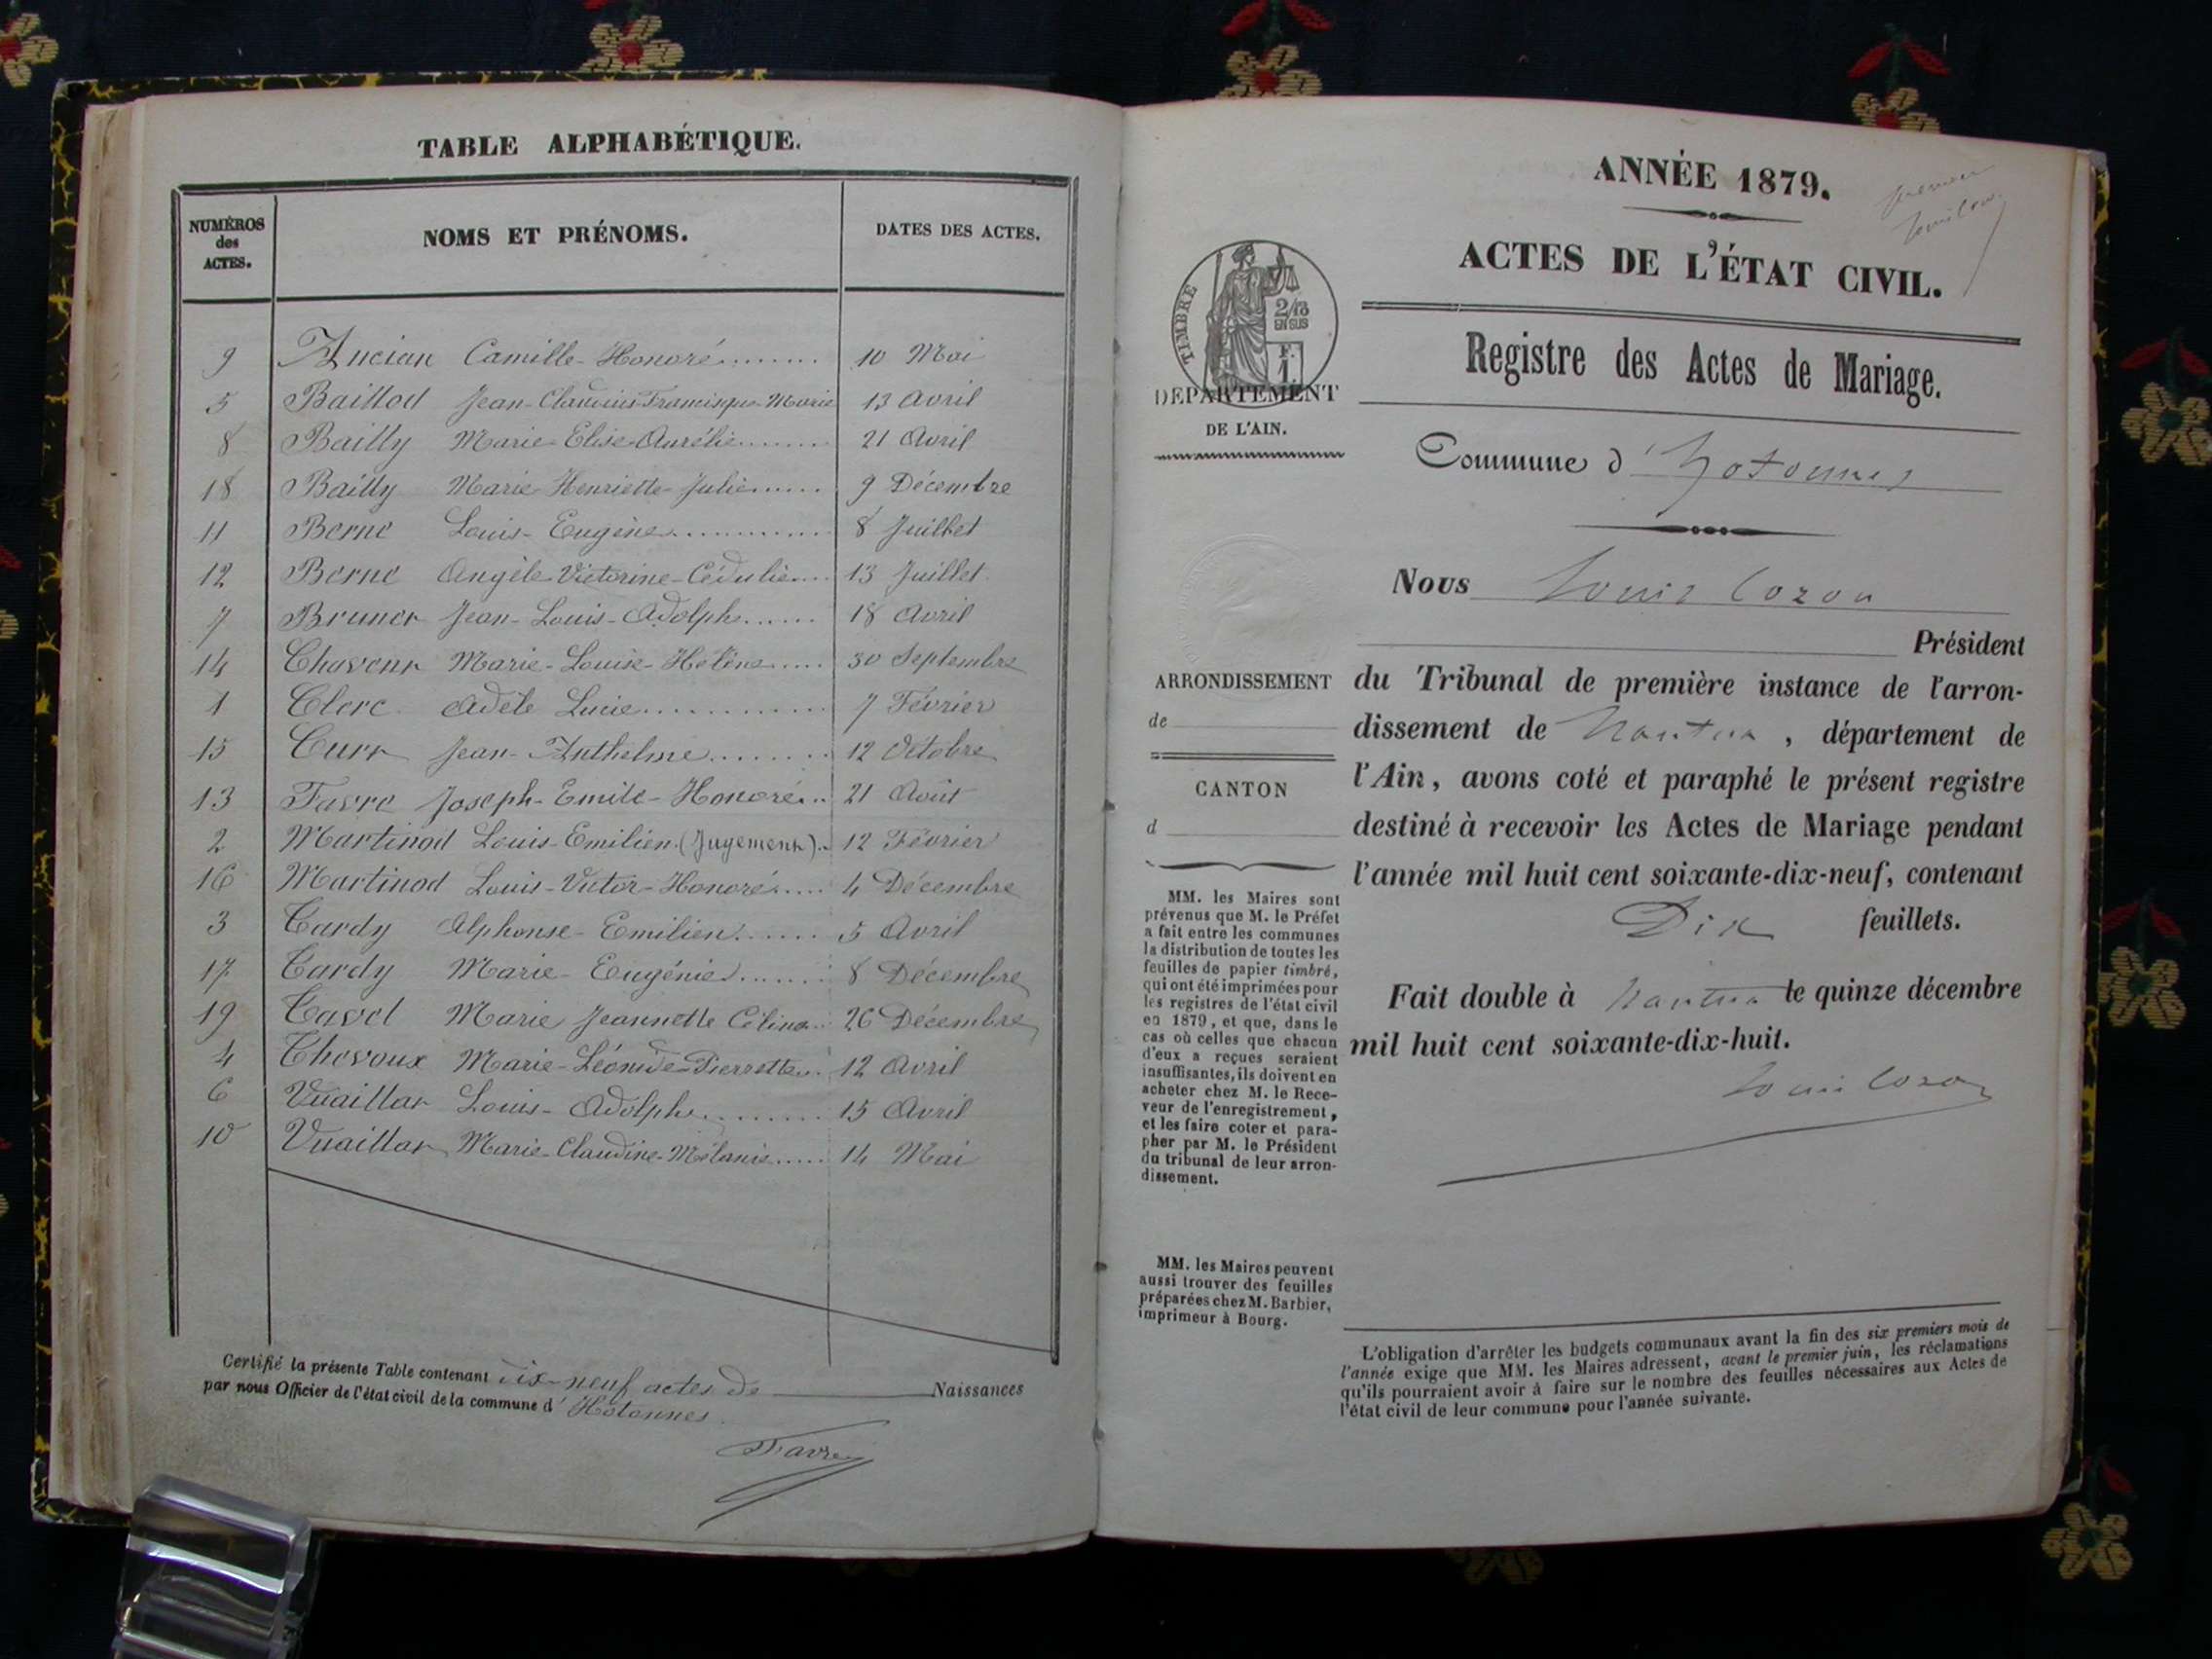 TABLE ALPHABÉTIQUE.
NUMÉROS des ACTES. NOMS ET PRÉNOMS. DATES DES ACTES.
9 Ancian Camille-Honoré 10 Mai
5 Baillod Jean-Claudius-Francisque-Marie 13 Avril
8 Bailly Marie-Elise-Aurélie 21 Avril
18 Bailly Marie-Henriette-Julie 9 Décembre
11 Berne Louis-Eugène 8 Juillet
12 Berne Angèle-Victorine-Cédulie 13 Juillet
7 Brunet Jean-Louis-Adolphe 18 Avril
14 Chavent Marie-Louise-Hélène 30 Septembre
1 Clerc Adèle Lucie 7 Février
15 Curt Jean-Anthelme 12 Octobre
13 Favre Joseph-Emile-Honoré 21 Août
2 Martinod Louis-Emilien (Jugement) 12 Février
16 Martinod Louis-Victor-Honoré 4 Décembre
3 Tardy Alphonse-Emilien 5 Avril
17 Tardy Marie-Eugénie 8 Décembre
19 Tavel Marie Jeannette Célina 26 Décembre
4 Thevoux Marie-Léonide-Pierrette 12 Avril
6 Vuaillat Louis-Adolphe 15 Avril
10 Vuaillat Marie-Claudine-Mélanie 14 Mai
Certifié la présente Table contenant dix-neuf actes de Naissances
par nous Officier de l'état civil de la commune d' Hotonnes
Favre
ANNÉE 1879.
premier
ACTES DE L'ÉTAT CIVIL.
TIMBRE
2/10
EN SUS
F.
1.
Registre des Actes de Mariage.
DEPARTEMENT
DE L'AIN.
Commune d'Hotonnes
Nous Louis Cozon
Président
ARRONDISSEMENT
de
CANTON
d
du Tribunal de première instance de l'arron-
dissement de Nantua, département de
l'Ain, avons coté et paraphé le présent registre
destiné à recevoir les Actes de Mariage pendant
l'année mil huit cent soixante-dix-neuf, contenant
Dix feuillets.
Fait double à Nantua le quinze décembre
mil huit cent soixante-dix-huit.
Louis Cozon
MM. les Maires sont
prévenus que M. le Préfet
a fait entre les communes
la distribution de toutes les
feuilles de papier timbré,
qui ont été imprimées pour
les registres de l'état civil
en 1879, et que, dans le
cas où celles que chacun
d'eux a reçues seraient
insuffisantes, ils doivent en
acheter chez M. le Rece-
veur de l'enregistrement,
et les faire coter et para-
pher par M. le Président
du tribunal de leur arron-
dissement.
MM. les Maires peuvent
aussi trouver des feuilles
préparées chez M. Barbier,
imprimeur à Bourg.
L'obligation d'arrêter les budgets communaux avant la fin des six premiers mois de
l'année exige que MM. les Maires adressent, avant le premier juin, les réclamations
qu'ils pourraient avoir à faire sur le nombre des feuilles nécessaires aux Actes de
l'état civil de leur commune pour l'année suivante.